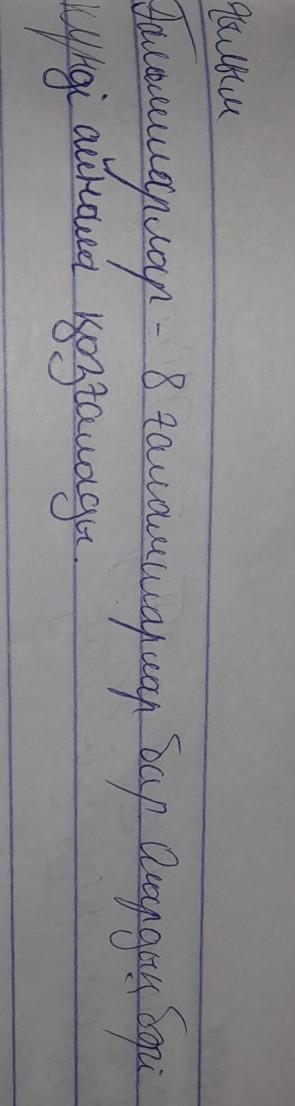 ғылым
Ғаламшарлар - 8 ғаламшарлар бар. Олардың бәрі
күнді айнала қозғалады.